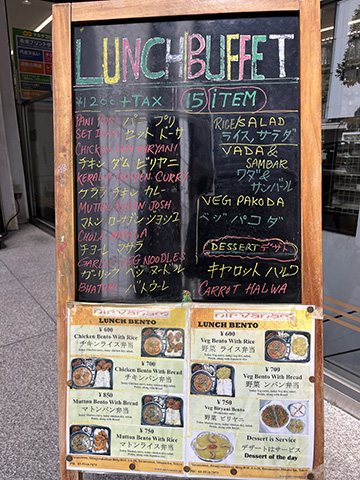 LUNCH BUFFET
¥1200 + TAX 15 ITEM
PANI PURI パニ プリ
SET DOSA セット ドーサ
CHICKEN DUM BIRYANI
チキン ダム ビリヤニ
KERALA CHICKEN CURRY
ケララ チキン カレー
MUTTON ROGAN JOSH
マトン ローガン ジョシュ
CHOLE MASALA
チョーレ マサラ
GARLIC VEG NOODLES
ガーリック ベジ ヌードル
BHATURE バトゥーレ
RICE/SALAD
ライス, サラダ
VADA &
SAMBAR
ワダ&
サンバール
VEG PAKODA
ベジ パコダ
DESSERT デザート
キャロット ハルワ
CARROT HALWA
nirvanam
LUNCH BENTO
¥ 600
Chicken Bento With Rice
チキンライス弁当
¥ 700
Chicken Bento With Bread
チキンパン弁当
¥ 850
Mutton Bento With Bread
マトンパン弁当
¥ 750
Mutton Bento With Rice
マトンライス弁当
nirvanam
LUNCH BENTO
¥ 600
Veg Bento With Rice
野菜 ライス弁当
¥ 700
Veg Bento With Bread
野菜 パン弁当
¥ 750
Veg Biryani Bento
野菜 ビリヤニ
Dessert is Service
デザートはサービス
Dessert of the day